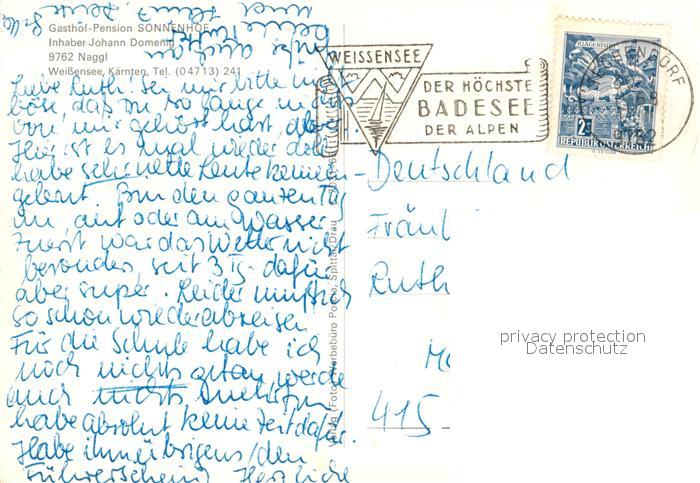 Gasthof-Pension SONNENHOF
Inhaber Johann Domenig
9762 Naggl
Weißensee, Kärnten, Tel. (0 47 13) 241
Liebe Ruth! Sei mir bitte nicht
böse, daß Du so lange nichts
von mir gehört hast, aber
Hier ist es mal wieder toll
habe sehr nette Leute kennen-
gelernt. Bin den ganzen Tag
im, auf oder am Wasser
Zuerst war das Wetter nicht
besonders, seit 3 Tg. dafür
aber super. Leider muß ich
so schon wieder abreisen
Für die Schule habe ich
noch nichts getan, werde
auch nichts
habe absolut keine Zeit dafür.
Habe ihn übrigens, den
Führerschein! Herzliche
WEISSENSEE
DER HÖCHSTE
BADESEE
DER ALPEN
KLAGENFURT
2S
REPUBLIK ÖSTERREICH
Deutschland
Fräul
Ruth
415
privacy protection
Datenschutz